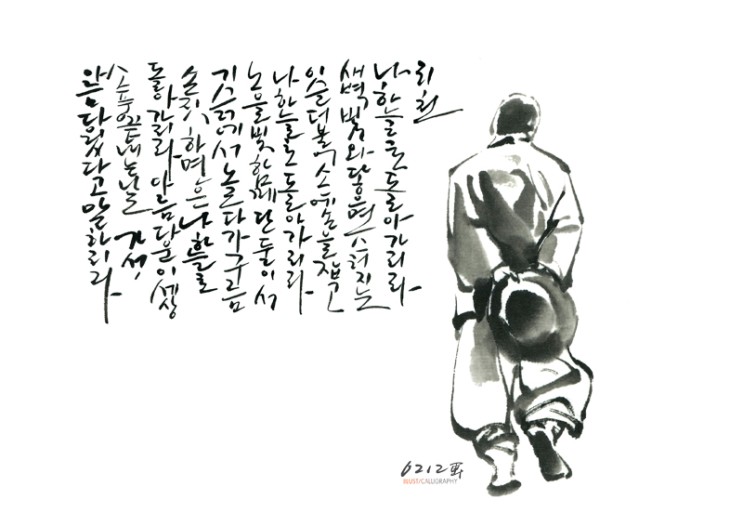 귀천
나 하늘로 돌아가리라
새벽빛 와 닿으면 스러지는
이슬 더불어 손에 손을 잡고
나 하늘로 돌아가리라
노을빛 함께 단 둘이서
기슭에서 놀다가 구름
손짓하며는 나 하늘로
돌아가리라 아름다운 이 세상
소풍 끝내는 날 가서
아름다웠다고 말하리라
6212
ILLUST/CALLIGRAPHY